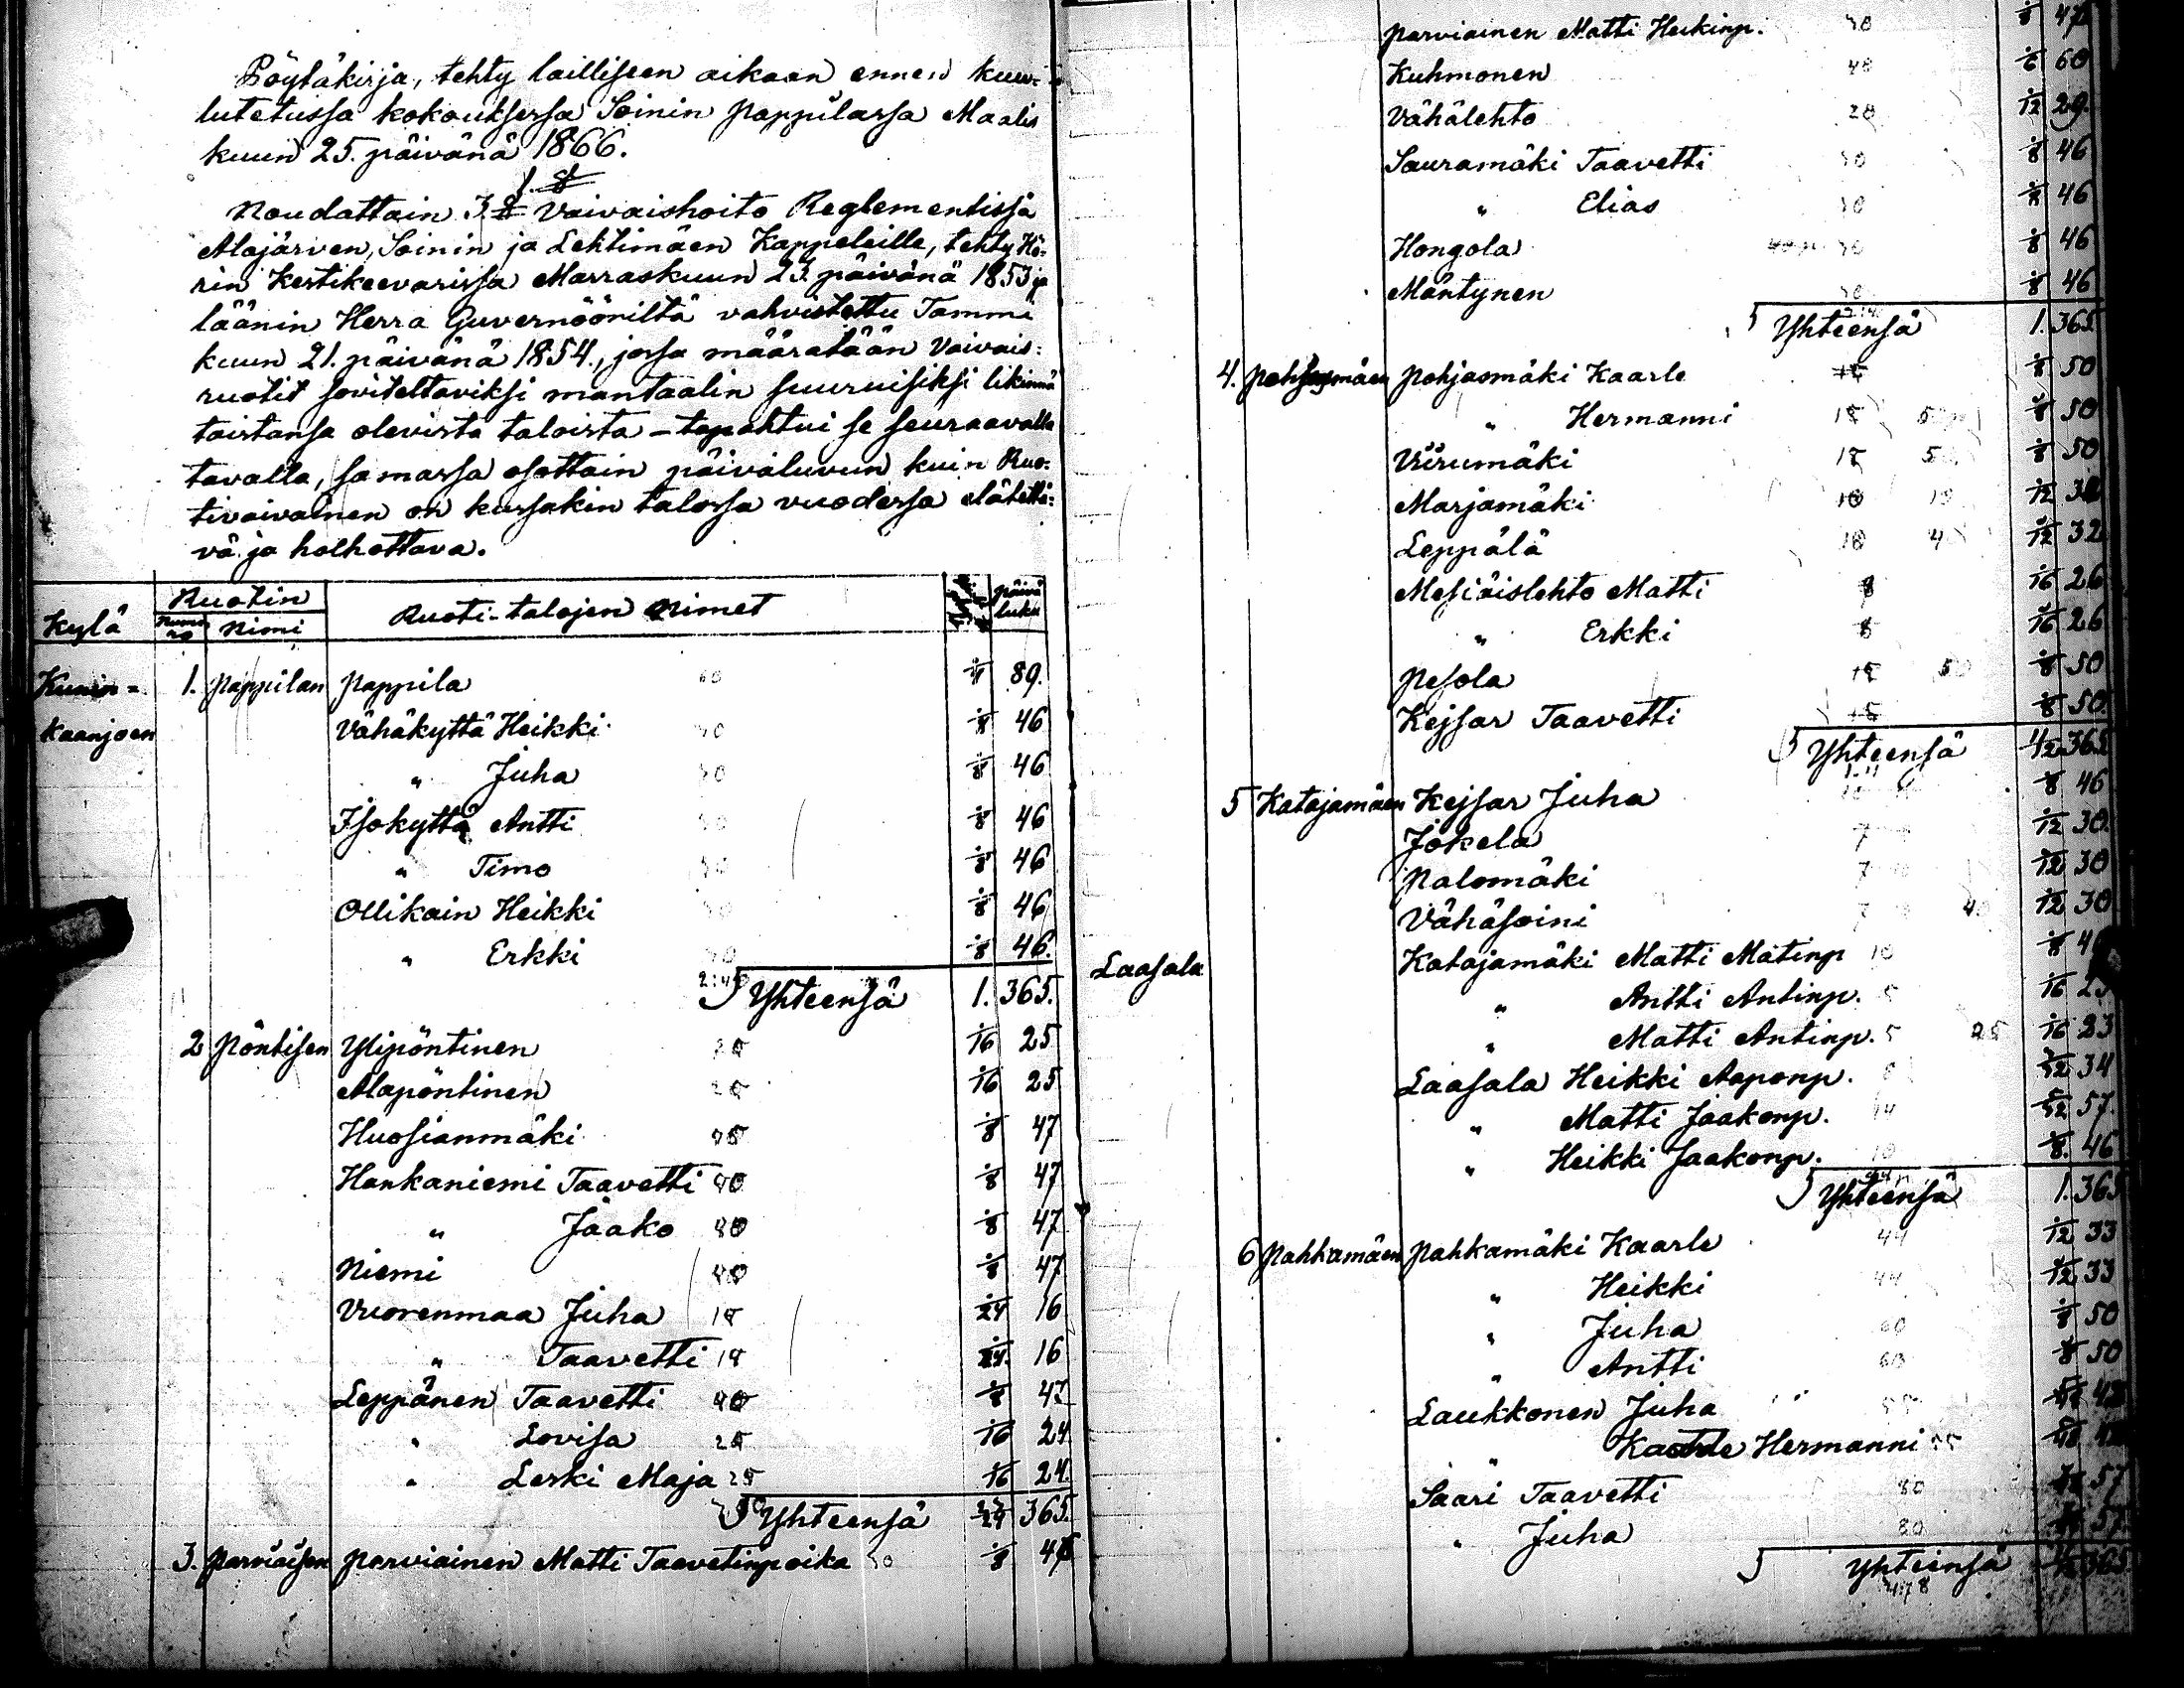 Pöytäkirja, tehty lailliseen aikaan ennen kuu-
lutetussa kokouksessa Soinin pappilassa Maalis
kuun 25. päivänä 1866.
1. §
Noudattain 3 § Vaivaishoito Reglementissä
Alajärven, Soinin ja Lehtimäen Kappeleille, tehty Hö-
rin Kestikeevarissa Marraskuun 23. päivänä 1853 ja
läänin Herra Guvernööriltä vahvistettu Tammi
kuun 21. päivänä 1854., jossa määrätään Vaivais:
ruotit soviteltaviksi mantaalin suuruisiksi likinnä
toistansa olevista taloista – tapahtui se seuraavalla
tavalla, samassa osottain päiväluvun kuin Ruo-
tivaivainen on kussakin talossa vuodessa elätettä:
vä ja holhottava.
Kylä Ruotin Numero Nimi Ruoti-talojen nimet päivä luku
Kunin= 1. Pappilan Pappila 1/4 89.
kaanjoen Vähäkyttä Heikki 1/8 46
" Juha 1/8 46
Isokyttä Antti 1/8 46
" Timo 1/8 46
Ollikain Heikki 1/8 46
" Erkki 1/8 46.
Yhteensä 1. 365.
2 Pöntisen Ylipöntinen 1/16 25
Alapöntinen 1/16 25
Huosianmäki 1/8 47
Hankaniemi Taavetti 40 1/8 47
" Jaako 40 1/8 47
Niemi 40 1/8 47
Vuorenmaa Juha 1/24 16
" Taavetti 1/24 16
Leppänen Taavetti 40 1/8 47
" Lovisa 1/16 24
" Leski Maja 25 1/16 24.
Yhteensä 365.
3. Parviaisen Parviainen Matti Taavetinpoika 1/8
Parviainen Matti Heikinp. 1/8 47
Kuhmonen 1/6 60
Vähälehto 1/12 29.
Sauramäki Taavetti 1/8 46
" Elias 1/8 46
Hongola 1/8 46
Mäntynen 1/8 46
Yhteensä 1. 365.
4. Pohjasmäen Pohjasmäki Kaarle 1/8 50
" Hermanni 1/8 50
Virumäki 1/8 50
Marjamäki 10 1/12
Leppälä 10 1/12 32
Mesiäislehto Matti 8 1/16 26
" Erkki 8 1/16 26
Pesola 1/8 50
Kejsar Taavetti 1/8 50.
Yhteensä 365
5 Katajamäen Kejsar Juha 1/8 46
Jokela 7 1/12 30.
Palomäki 7 1/12 30
Vähäsoini 7 1/12 30
Katajamäki Matti Matinp 10 1/8
Laasala
" Antti Antinp. 5 1/16
" Matti Antinp. 5 25 1/16 23
Laasala Heikki Aaponp. 34
" Matti Jaakonp. 57.
" Heikki Jaakonp. 10 1/8. 46
Yhteensä 1. 365
6 Pahkamäen Pahkamäki Kaarle 44 1/12 33
" Heikki 44 1/12 33
" Juha 60 1/8 50
" Antti 1/8 50
Laukkonen Juha
" Kaarle Hermanni
Saari Taavetti 80 57
" Juha 80 57
Yhteensä 365